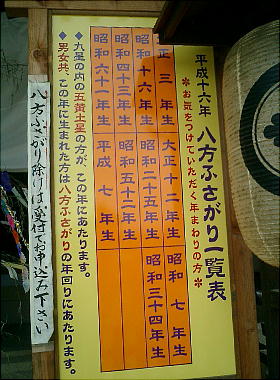 平成十六年 八方ふさがり一覧表
＊お気をつけていただく年まわりの方＊
正 三 年生 大正十二年生 昭和 七 年生
昭和十六年生 昭和二十五年生 昭和三十四年生
昭和四十三年生 昭和五十二年生
昭和六十一年生 平成 七 年生
◆九星の内の五黄土星の方が、この年にあたります。
◆男女共、この年に生まれた方は八方ふさがりの年回りにあたります。
八方ふさがり除けは受付でお申込み下さい